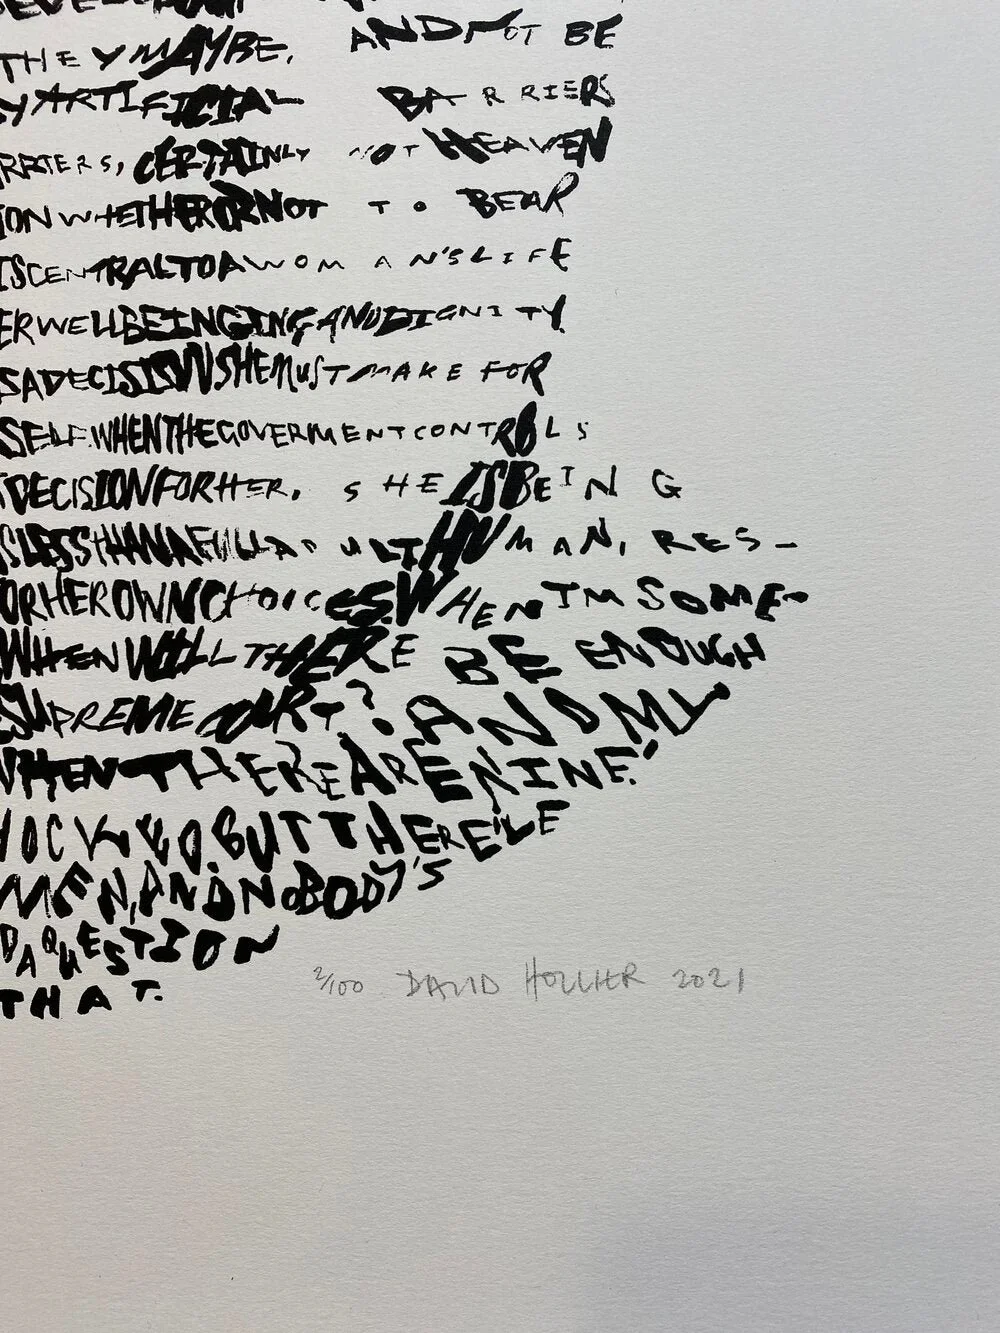 THEY MAYBE. AND NOT BE
Y ARTIFICIAL BARRIERS
RRIERS, CERTAINLY NOT HEAVEN
ION WHETHER OR NOT TO BEAR
IS CENTRAL TO A WOMAN'S LIFE
ER WELL BEINGING AND DIGNITY
S A DECISION SHE MUST MAKE FOR
SELF. WHEN THE GOVERMENT CONTROLS
DECISION FOR HER, SHE IS BEING
S LESS THAN A FULL ADULT HUMAN, RES-
OR HER OWN CHOICES. WHEN I'M SOME-
WHEN WILL THERE BE ENOUGH
SUPREME COURT? AND MY
WHEN THERE ARE NINE."
HOCKED. BUT THERE'LE
MEN, AND NOBODY'S
D A QUESTION
THAT.
2/100 DAVID HOLLIER 2021